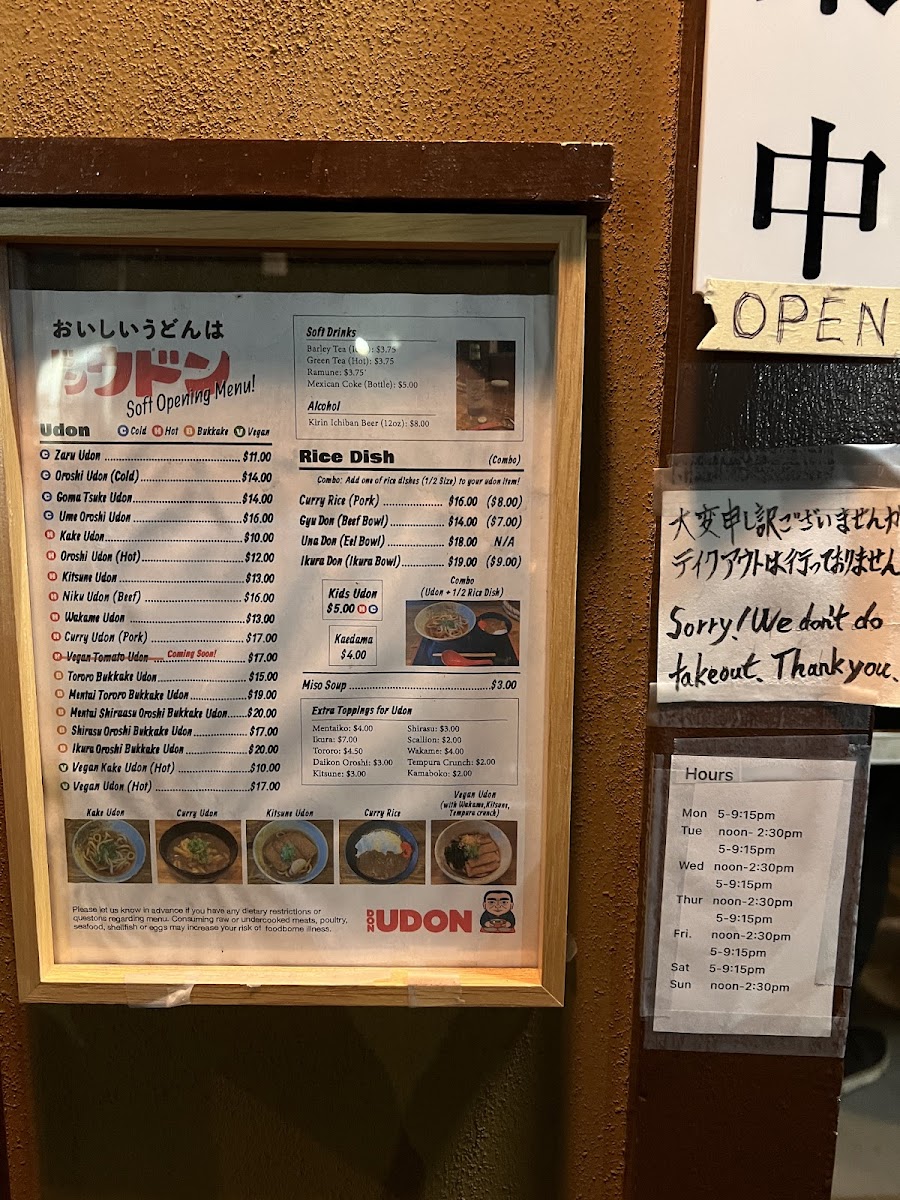 おいしいうどんは
ドン
ウドン
Soft Opening Menu!
Udon
C Cold H Hot B Bukkake V Vegan
C Zaru Udon $11.00
C Oroshi Udon (Cold) $14.00
C Goma Tsuke Udon $14.00
C Ume Oroshi Udon $16.00
H Kake Udon $10.00
H Oroshi Udon (Hot) $12.00
H Kitsune Udon $13.00
H Niku Udon (Beef) $16.00
H Wakame Udon $13.00
H Curry Udon (Pork) $17.00
Vegan Tomato Udon Coming Soon! $17.00
B Tororo Bukkake Udon $15.00
B Mentai Tororo Bukkake Udon $19.00
B Mentai Shiraasu Oroshi Bukkake Udon $20.00
B Shirasu Oroshi Bukkake Udon $17.00
B Ikura Oroshi Bukkake Udon $20.00
V Vegan Kake Udon (Hot) $10.00
V Vegan Udon (Hot) $17.00
Soft Drinks
Barley Tea : $3.75
Green Tea (Hot): $3.75
Ramune: $3.75
Mexican Coke (Bottle): $5.00
Alcohol
Kirin Ichiban Beer (12oz): $8.00
Rice Dish (Combo)
Combo: Add one of rice dishes (1/2 Size) to your udon item!
Curry Rice (Pork) $16.00 ($8.00)
Gyu Don (Beef Bowl) $14.00 ($7.00)
Una Don (Eel Bowl) $18.00 N/A
Ikura Don (Ikura Bowl) $19.00 ($9.00)
Kids Udon
$5.00 H C
Kaedama
$4.00
Combo
(Udon + 1/2 Rice Dish)
Miso Soup $3.00
Extra Toppings for Udon
Mentaiko: $4.00
Ikura: $7.00
Tororo: $4.50
Daikon Oroshi: $3.00
Kitsune: $3.00
Shirasu: $3.00
Scallion: $2.00
Wakame: $4.00
Tempura Crunch: $2.00
Kamaboko: $2.00
Kake Udon
Curry Udon
Kitsune Udon
Curry Rice
Vegan Udon
(with Wakame,Kitsune,
Tempura crunch)
Please let us know in advance if you have any dietary restrictions or
questons regarding menu. Consuming raw or undercooked meats, poultry,
seafood, shellfish or eggs may increase your risk of foodborne illness.
DON UDON
中
OPEN
大変申し訳ございませんが
テイクアウトは行っておりません
Sorry! We don't do
takeout. Thank you.
Hours
Mon 5-9:15pm
Tue noon- 2:30pm
5-9:15pm
Wed noon-2:30pm
5-9:15pm
Thur noon-2:30pm
5-9:15pm
Fri. noon-2:30pm
5-9:15pm
Sat 5-9:15pm
Sun noon-2:30pm